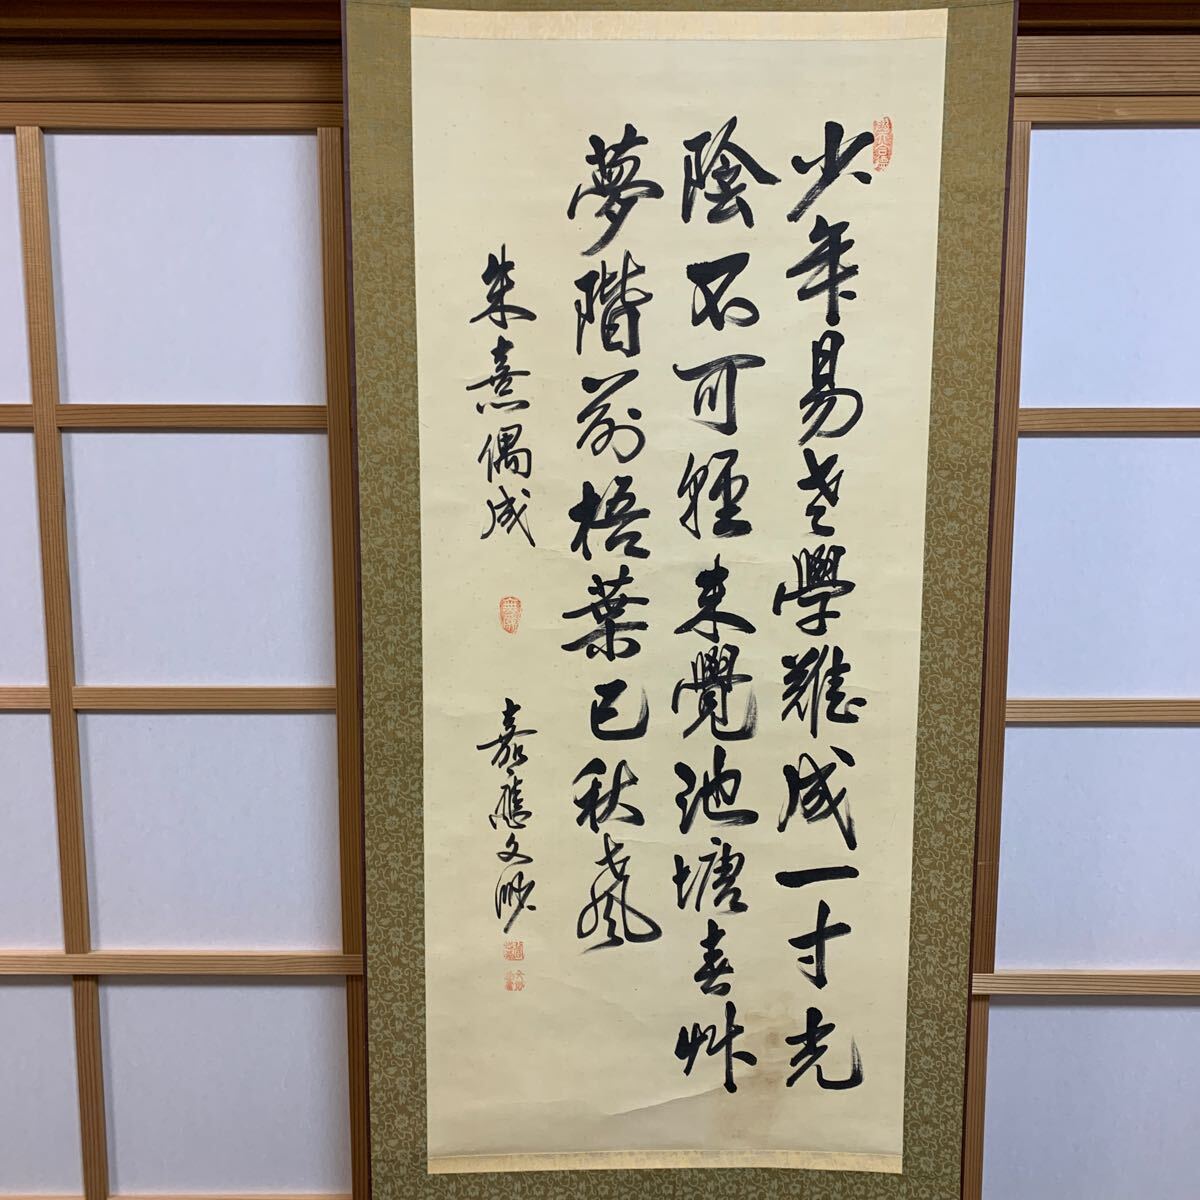 少年易老學難成一寸光
陰不可軽未覺池塘春艸
夢階前梧葉已秋聲
朱熹偶成
嘉應文